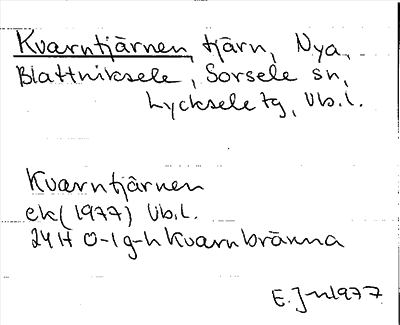 Kvarntjärnen, tjärn, Nya,
Blattniksele, Sorsele sn,
Lycksele tg, Vb.l.
Kvarntjärnen
ek (1977) Vb.l.
24 H 0-1 g-h Kvarnbränna
E. J-n 1977